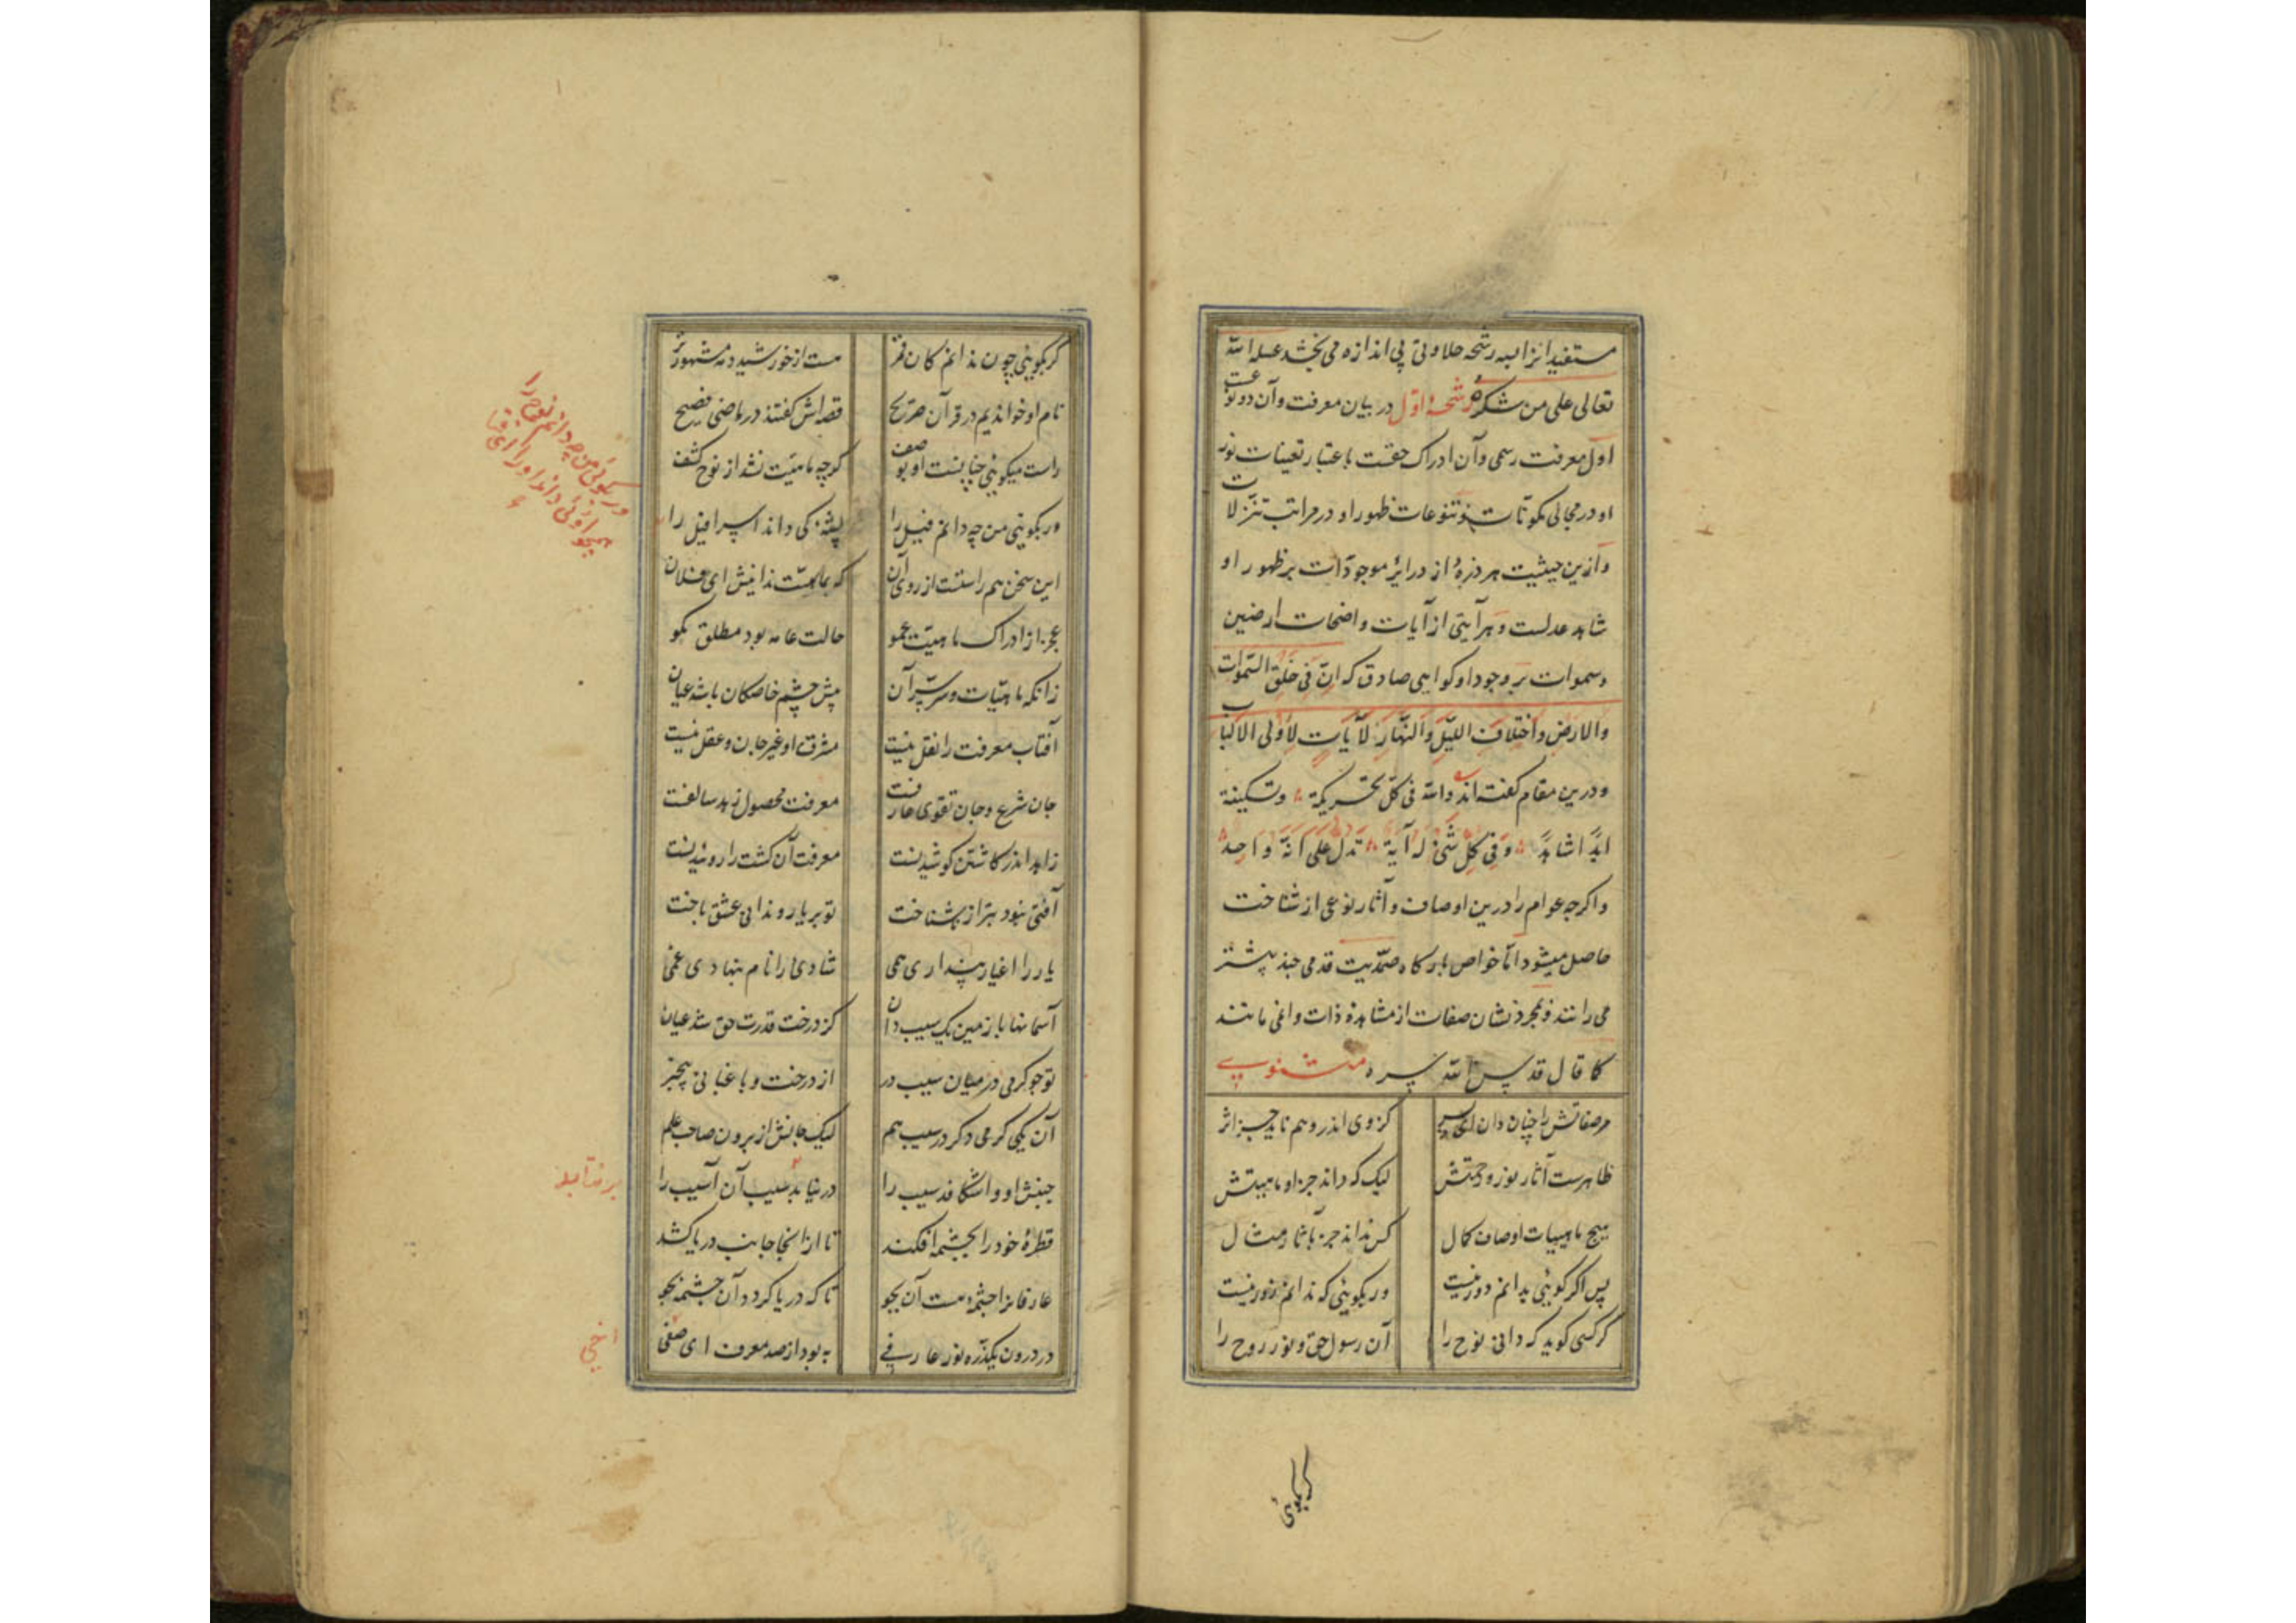 مستفیدانرا لبه رشحه حلاوتی بی اندازه می بخشد عسله الله
تعالی علی من شکره رشحهٔ اوّل در بیان معرفت و آن دو نوعست
اول معرفت رسمی و آن ادراک حقست باعتبار تعینات نور
او در مجالی مکوّنات و تنوعات ظهور او در مراتب تنزلات
و ازین حیثیت هر ذرهٔ از درایر موجودات بر ظهور او
شاهد عدلست و هر آیتی از آیات واضحات ارضین
و سموات بر وجود او کواهی صادق که انّ فی خلق السّموات
والارض واختلاف اللیل والنّهار لآیات لأولی الالباب
و درین مقام کفته اند والله فی کلّ تحریکة و تسکینة
ابدًا شاهد و فی کل شیء له آیة تدل علی انّه واحد
و اکرچه عوام را درین اوصاف و آثار نوعی از شناخت
حاصل میشود امّا خواص بارکاه صمدیت قدمی چند پیشتر
می رانند و بمجرد نشان صفات از مشاهدهٔ ذات وا نمی مانند
کما قال قدس الله سره مثنوی
مر صفاتش را چنان دان ای پسر کز وی اندر وهم ناید جز اثر
ظاهرست آثار نور و رحمتش لیک که داند جز او ماهیتش
هیچ ماهیات اوصاف کمال کس نداند جز بآثار و مثال
پس اکر کوئی بدانم دور نیست ور بکوئی که ندانم زور نیست
کر کسی کوید که دانی نوح را آن رسول حق و نور روح را
کر بکوئی
کر بکوئی چون ندانم کان قمر هست از خورشید و مه مشهورتر
نام او خواندیم در قرآن صریح قصه اش کفتند در ماضی فصیح
راست میکوئی چنانست او بوصف کرچه ماهیّت نشد از نوح کشف
ور بکوئی من چه دانم فیل را پشهٔ کی داند اسرافیل را
این سخن هم راستست از روی آن که بماهیّت ندانیش ای فلان
عجز از ادراک ماهیّت عمو حالت عامه بود مطلق مکو
زانکه ماهیّات و سرّ سرّ آن پیش چشم خاصکان باشد عیان
آفتاب معرفت را نقل نیست مشرق او غیر جان و عقل نیست
جان شرع و جان تقوی عارفست معرفت محصول زهد سالفست
زاهد اندر کاشتن کوشیدنست معرفت آن کشت را روئیدنست
آفتی نبود بتر از ناشناخت تو بر یار و ندانی عشق باخت
یار را اغیار پنداری همی شادئی را نام بنهادی غمی
آسمانها با زمین یک سیب دان کز درخت قدرت حق شد عیان
تو چو کرمی در میان سیب در از درخت و باغبانی بیخبر
آن یکی کرمی دکر در سیب هم لیک جانش از برون صاحب علم
جنبش او واشکافد سیب را در نیابد سیب آن آسیب را
قطرهٔ خود را بچشمه افکند تا از انجا جانب دریا کشد
عارفانرا چشمهٔ هست آن بجو تا که دریا کردد آن چشمه بجو
در درون یکذره نور عارفی به بود از صد معرف ای صفی
ور بکوئی من چه دانم نوح را
همچو اوئی داند او را ای فتا
بر نتابد
اخی